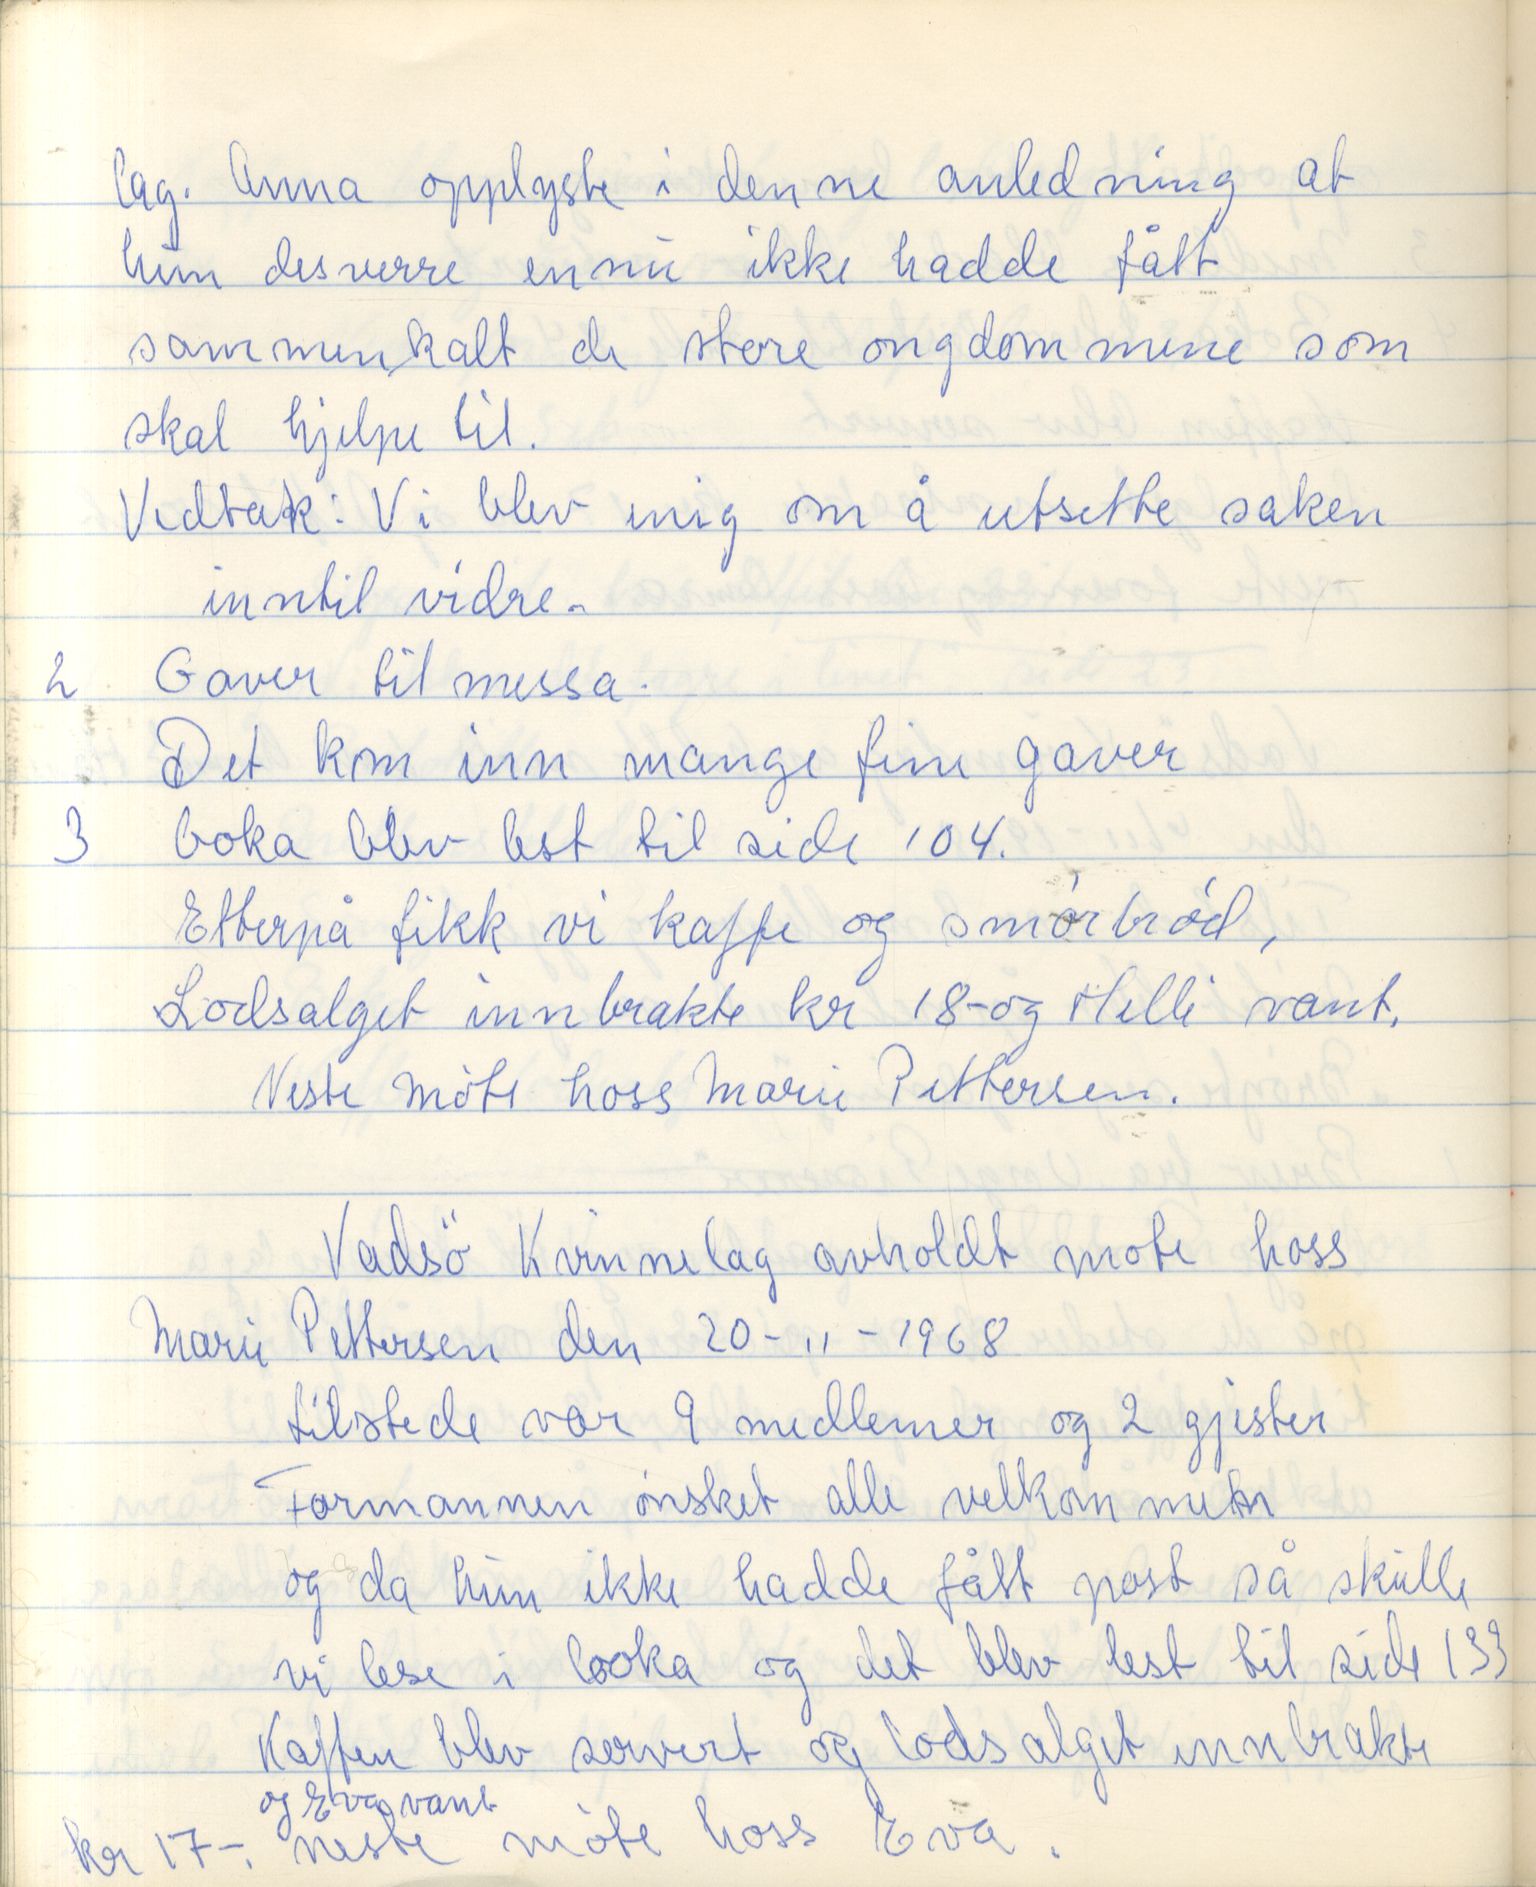 lag. Anna opplyste i denne anledning at
hun desverre ennu ikke hadde fått
sammenkalt de store ongdommene som
skal hjelpe til.
Vedtak: Vi blev enig om å utsette saken
inntil vidre.
2 Gaver til messa.
Det kom inn mange fine gaver
3 boka blev lest til side 104.
Etterpå fikk vi kaffe og smörbröd,
Lodsalget innbrakte kr 18- og Helli vant.
Neste möte hoss Marie Pettersen.
Vadsö Kvinnelag avholdt mote hoss
Marie Pettersen den 20-11-1968
tilstede var 9 medlemer og 2 gjester
Formannen önsket alle velkommen
og da hun ikke hadde fått post så skulle
vi lese i boka og det blev lest til side 133
Kaffen blev servert og lodsalget innbrakte
og Eva vant
kr 17-. neste möte hoss Eva.